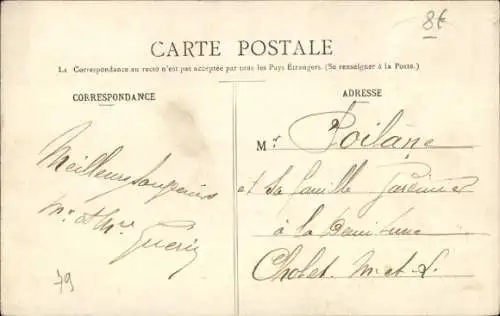 8€
CARTE POSTALE
La Correspondance au recto n'est pas acceptée par tous les Pays Étrangers. (Se renseigner à la Poste.)
CORRESPONDANCE
Meilleurs
Mr et Mme
Guerin
79
ADRESSE
Mr. Poilâne
et sa famille
à la Demi Lune
Cholet M. et L.